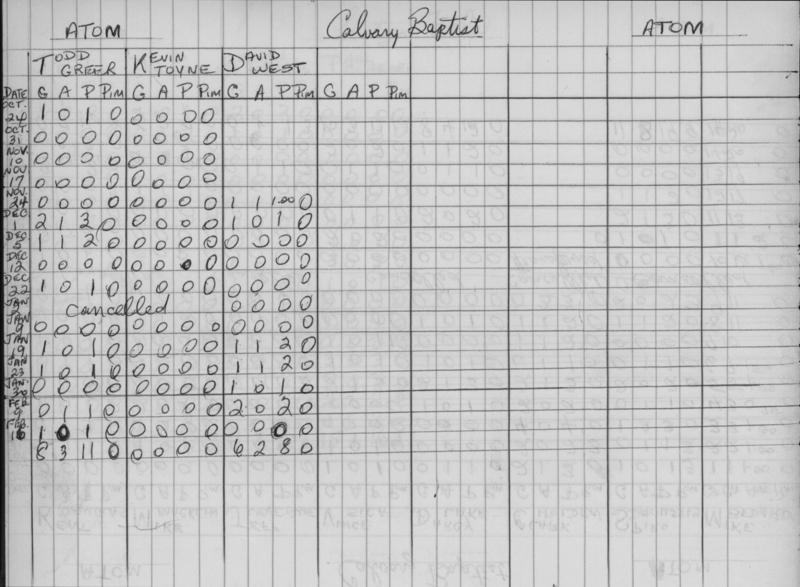 ATOM Calvary Baptist ATOM
TODD GREER KEVIN TOYNE DAVID WEST
DATE G A P Pim G A P Pim G A P Pim G A P Pim
OCT. 24 1 0 1 0 0 0 0 0
OCT. 31 0 0 0 0 0 0 0 0
NOV. 10 0 0 0 0 0 0 0 0
NOV 17 0 0 0 0 0 0 0 0
NOV. 24 0 0 0 0 0 0 0 0 1 1 0
DEC 1 2 1 3 0 0 0 0 0 1 0 1 0
DEC 5 1 1 2 0 0 0 0 0 0 0 0 0
DEC 12 0 0 0 0 0 0 0 0 0 0 0
DEC 22 1 0 1 0 0 0 0 0 0 0 0 0
JAN cancelled 0 0 0 0
JAN 9 0 0 0 0 0 0 0 0 0 0 0 0
JAN 19 1 0 1 0 0 0 0 0 1 1 2 0
JAN 23 1 0 1 0 0 0 0 0 1 1 2 0
JAN 30 0 0 0 0 0 0 0 0 1 0 1 0
FEB. 9 0 1 1 0 0 0 0 0 2 0 2 0
FEB. 16 1 0 1 0 0 0 0 0 0 0 0 0
8 3 11 0 0 0 0 0 6 2 8 0